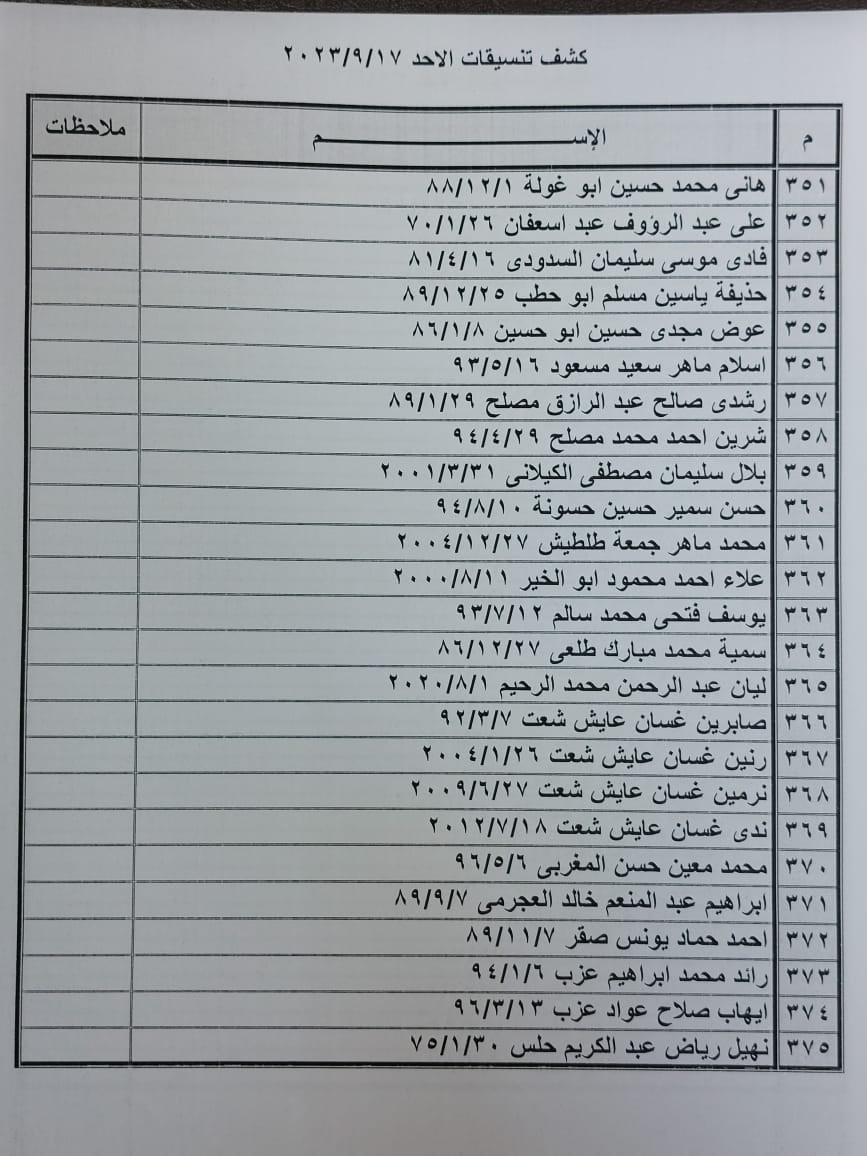 كشف تنسيقات الاحد ٢٠٢٣/٩/١٧
م الإســـــــــم ملاحظات
٣٥١ هانى محمد حسين ابو غولة ٨٨/١٢/١
٣٥٢ على عبد الرؤوف عبد اسعفان ٧٠/١/٢٦
٣٥٣ فادى موسى سليمان السدودى ٨١/٤/١٦
٣٥٤ حذيفة ياسين مسلم ابو حطب ٨٩/١٢/٢٥
٣٥٥ عوض مجدى حسين ابو حسين ٨٦/١/٨
٣٥٦ اسلام ماهر سعيد مسعود ٩٣/٥/١٦
٣٥٧ رشدى صالح عبد الرازق مصلح ٨٩/١/٢٩
٣٥٨ شرين احمد محمد مصلح ٩٤/٤/٢٩
٣٥٩ بلال سليمان مصطفى الكيلانى ٢٠٠١/٣/٣١
٣٦٠ حسن سمير حسين حسونة ٩٤/٨/١٠
٣٦١ محمد ماهر جمعة طلطيش ٢٠٠٤/١٢/٢٧
٣٦٢ علاء احمد محمود ابو الخير ٢٠٠٠/٨/١١
٣٦٣ يوسف فتحى محمد سالم ٩٣/٧/١٢
٣٦٤ سمية محمد مبارك طلعى ٨٦/١٢/٢٧
٣٦٥ ليان عبد الرحمن محمد الرحيم ٢٠٢٠/٨/١
٣٦٦ صابرين غسان عايش شعت ٩٢/٣/٧
٣٦٧ رنين غسان عايش شعت ٢٠٠٤/١/٢٦
٣٦٨ نرمين غسان عايش شعت ٢٠٠٩/٦/٢٧
٣٦٩ ندى غسان عايش شعت ٢٠١٢/٧/١٨
٣٧٠ محمد معين حسن المغربى ٩٦/٥/٦
٣٧١ ابراهيم عبد المنعم خالد العجرمى ٨٩/٩/٧
٣٧٢ احمد حماد يونس صقر ٨٩/١١/٧
٣٧٣ رائد محمد ابراهيم عزب ٩٤/١/٦
٣٧٤ ايهاب صلاح عواد عزب ٩٦/٣/١٣
٣٧٥ نهيل رياض عبد الكريم حلس ٧٥/١/٣٠